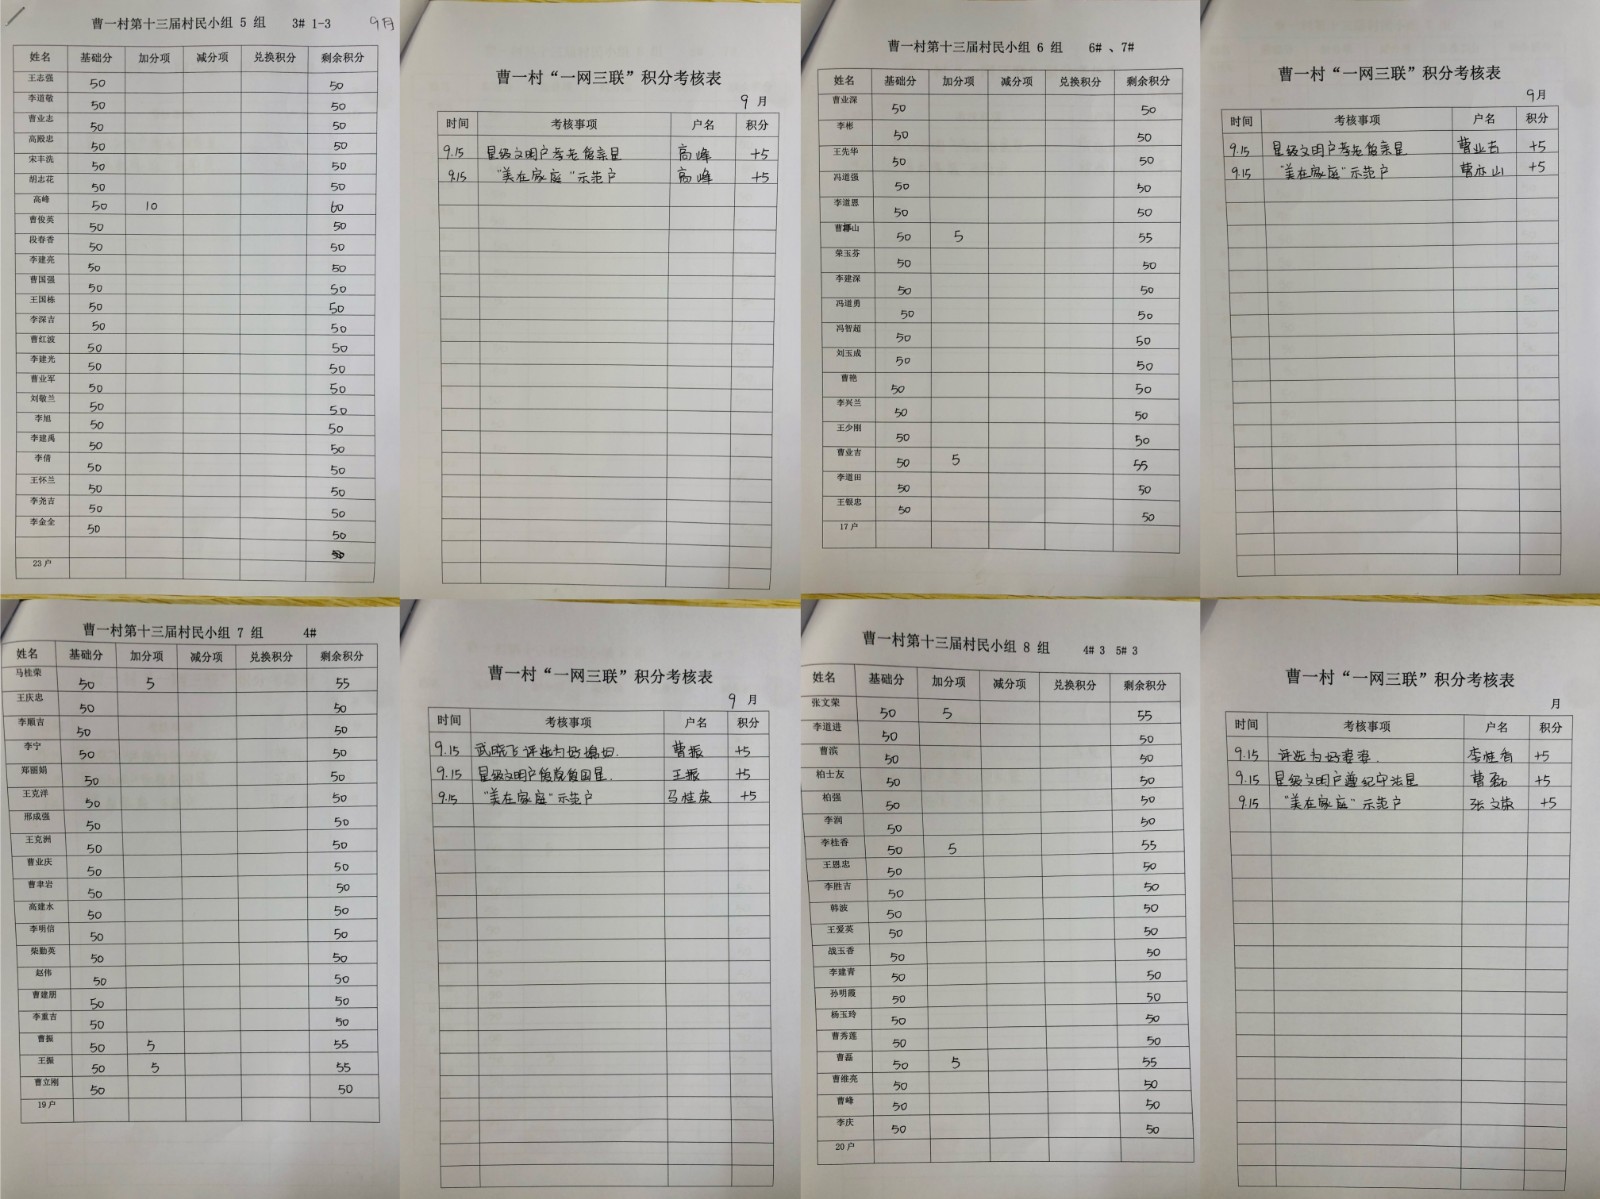 曹一村第十三届村民小组 5 组 3# 1-3 9月
姓名 基础分 加分项 减分项 兑换积分 剩余积分
王志强 50 50
李道敬 50 50
曹业志 50 50
高殿忠 50 50
宋丰洗 50 50
胡志花 50 50
高峰 50 10 60
曹俊英 50 50
段春香 50 50
李建亮 50 50
曹国强 50 50
王国栋 50 50
李深吉 50 50
曹红波 50 50
李建光 50 50
曹业军 50 50
刘敬兰 50 50
李旭 50 50
李建禹 50 50
李倩 50 50
王怀兰 50 50
李尧吉 50 50
李金全 50 50
23 户
曹一村“一网三联”积分考核表
9 月
时间 考核事项 户名 积分
9.15 星级文明户孝老爱亲星 高峰 +5
9.15 "美在家庭"示范户 高峰 +5
曹一村第十三届村民小组 6 组 6# 、7#
姓名 基础分 加分项 减分项 兑换积分 剩余积分
曹业深 50 50
李彬 50 50
王先华 50 50
冯道强 50 50
李道恩 50 50
曹山 50 5 55
荣玉芬 50 50
李建深 50 50
冯道勇 50 50
冯智超 50 50
刘玉成 50 50
曹艳 50 50
李兴兰 50 50
王少刚 50 50
曹业吉 50 5 55
李道田 50 50
王银忠 50 50
17 户
曹一村“一网三联”积分考核表
9月
时间 考核事项 户名 积分
9.15 星级文明户孝老爱亲星 曹业吉 +5
9.15 "美在家庭"示范户 曹亦山 +5
曹一村第十三届村民小组 7 组 4#
姓名 基础分 加分项 减分项 兑换积分 剩余积分
马桂荣 50 5 55
王庆忠 50 50
李顺吉 50 50
李宁 50 50
郑丽娟 50 50
王克洋 50 50
邢成强 50 50
王克洲 50 50
曹业庆 50 50
曹聿岩 50 50
高建水 50 50
李明信 50 50
荣勤英 50 50
赵伟 50 50
曹建朋 50 50
李重吉 50 50
曹振 50 5 55
王振 50 5 55
曹立刚 50 50
19 户
曹一村“一网三联”积分考核表
9 月
时间 考核事项 户名 积分
9.15 武晓飞评选为好媳妇. 曹振 +5
9.15 星级文明户爱党爱国星. 王振 +5
9.15 "美在家庭"示范户 马桂荣 +5
曹一村第十三届村民小组 8 组 4# 3 5# 3
姓名 基础分 加分项 减分项 兑换积分 剩余积分
张文荣 50 5 55
李道进 50 50
曹滨 50 50
柏士友 50 50
柏强 50 50
李润 50 50
李桂香 50 5 55
王恩忠 50 50
李胜吉 50 50
韩波 50 50
王爱英 50 50
战玉香 50 50
李建青 50 50
孙明霞 50 50
杨玉玲 50 50
曹秀莲 50 50
曹磊 50 5 55
曹维亮 50 50
曹峰 50 50
李庆 50 50
20 户
曹一村“一网三联”积分考核表
月
时间 考核事项 户名 积分
9.15 评选为好婆婆. 李桂香 +5
9.15 星级文明户遵纪守法星 曹磊 +5
9.15 "美在家庭"示范户 张文荣 +5